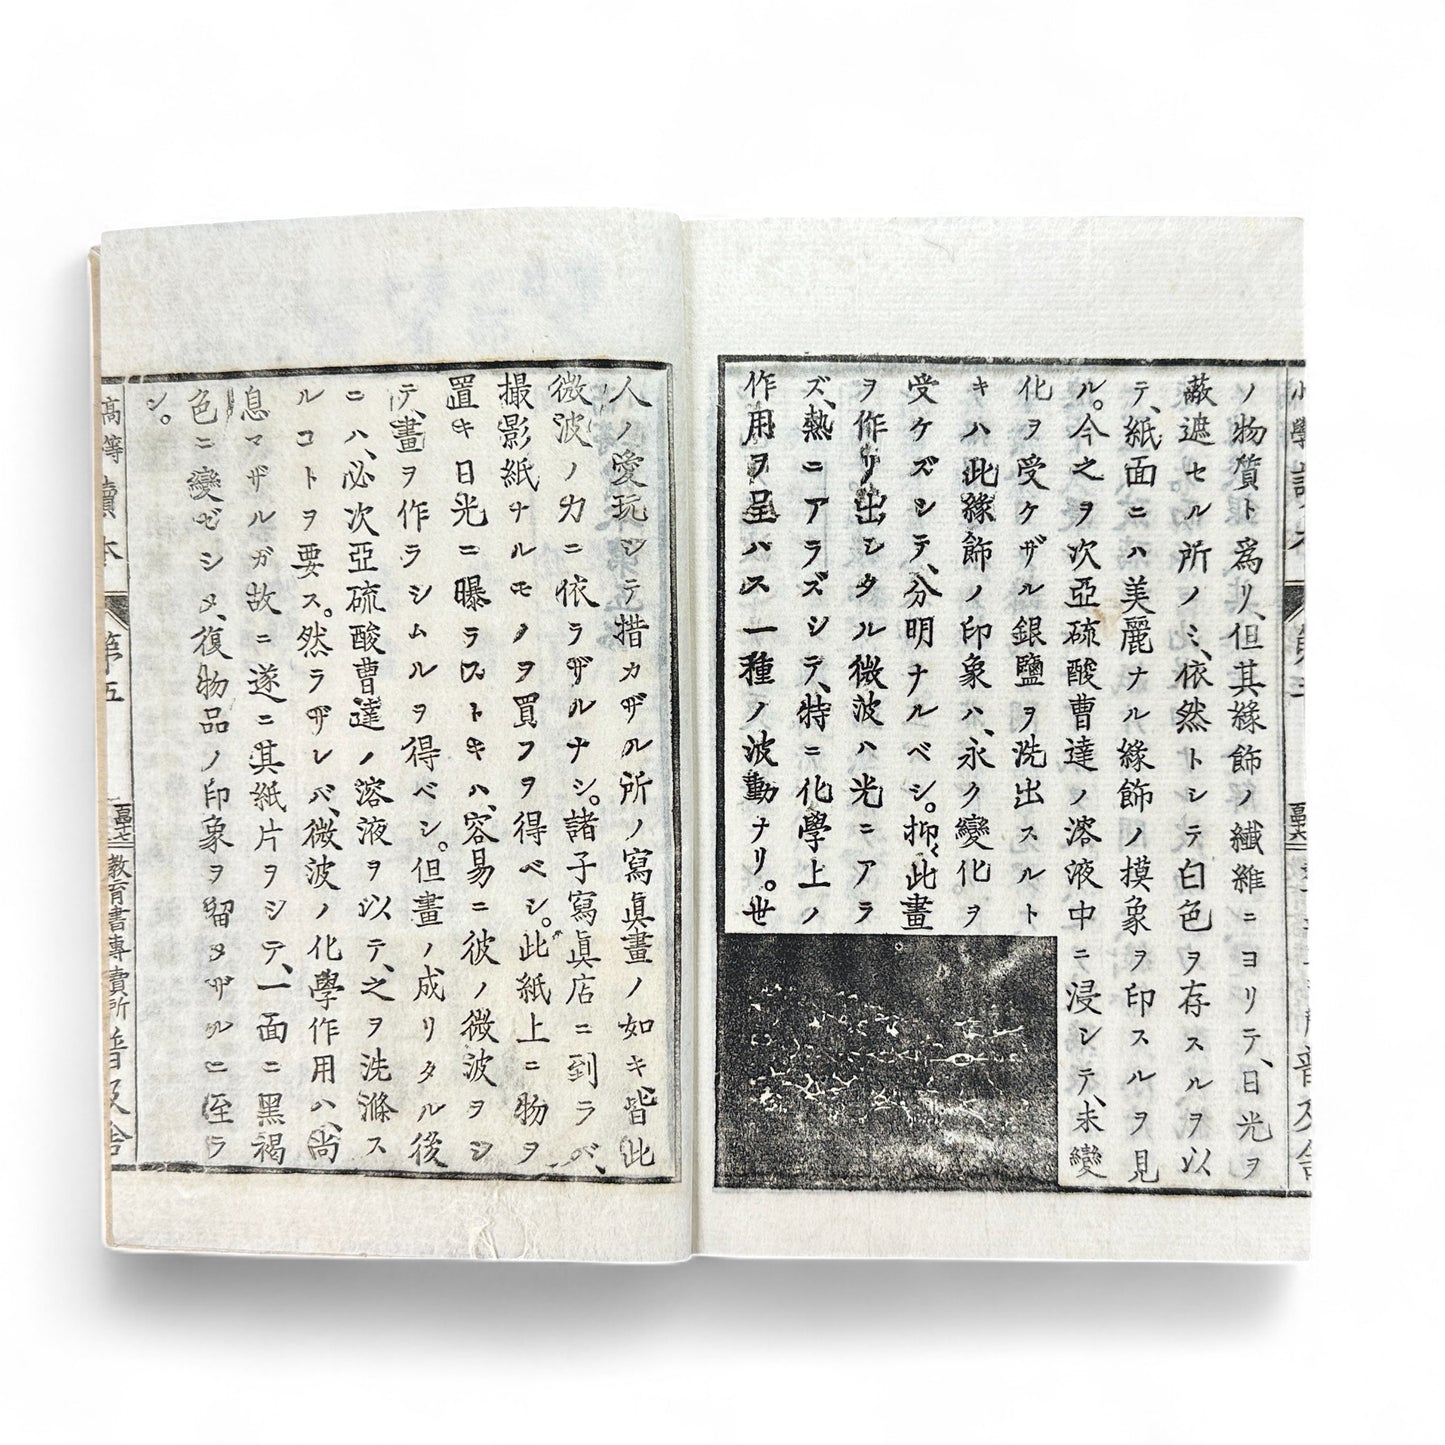 ノ物質ト爲リ、但其緣飾ノ纎維ニヨリテ、日光ヲ
蔽遮セル所ノミ、依然トシテ白色ヲ存スルヲ以
テ、紙面ニハ美麗ナル緣飾ノ摸象ヲ印スルヲ見
ル。今之ヲ次亞硫酸曹達ノ溶液中ニ浸シテ、未變
化ヲ受ケザル銀鹽ヲ洗出スルト
キハ此緣飾ノ印象ハ、永ク變化ヲ
受ケズシテ、分明ナルベシ。抑〻此畫
ヲ作リ出シタル微波ハ光ニアラ
ズ、熱ニアラズシテ、特ニ化學上ノ
作用ヲ呈ハス一種ノ波動ナリ。世
人ノ愛玩シテ措カザル所ノ寫眞畫ノ如キ皆此
微波ノ力ニ依ラザルナシ。諸子寫眞店ニ到ラバ、
撮影紙ナルモノヲ買フヲ得ベシ。此紙上ニ物ヲ
置キ日光ニ曝ラストキハ、容易ニ彼ノ微波ヲシ
テ、畫ヲ作ラシムルヲ得ベシ。但畫ノ成リタル後
ニハ、必次亞硫酸曹達ノ溶液ヲ以テ、之ヲ洗滌ス
ルコトヲ要ス。然ラザレバ、微波ノ化學作用ハ、尚
息マザルガ故ニ遂ニ其紙片ヲシテ、一面ニ黑褐
色ニ變ゼシメ、復物品ノ印象ヲ留メザルニ至ラ
シ。
高等讀本 第五 教育書專賣所 普及舍